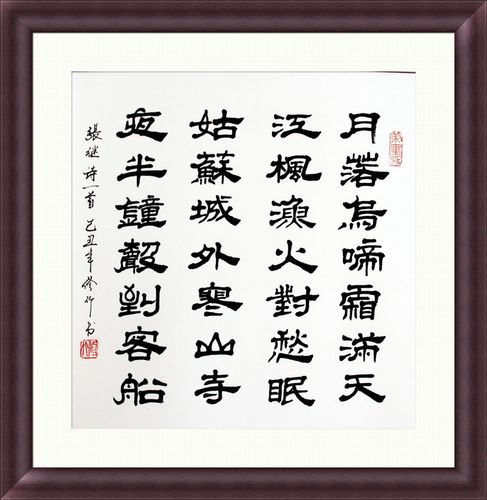 月落烏啼霜滿天
江楓漁火對愁眠
姑蘇城外寒山寺
夜半鐘聲到客船
張继诗一首己丑年修竹书